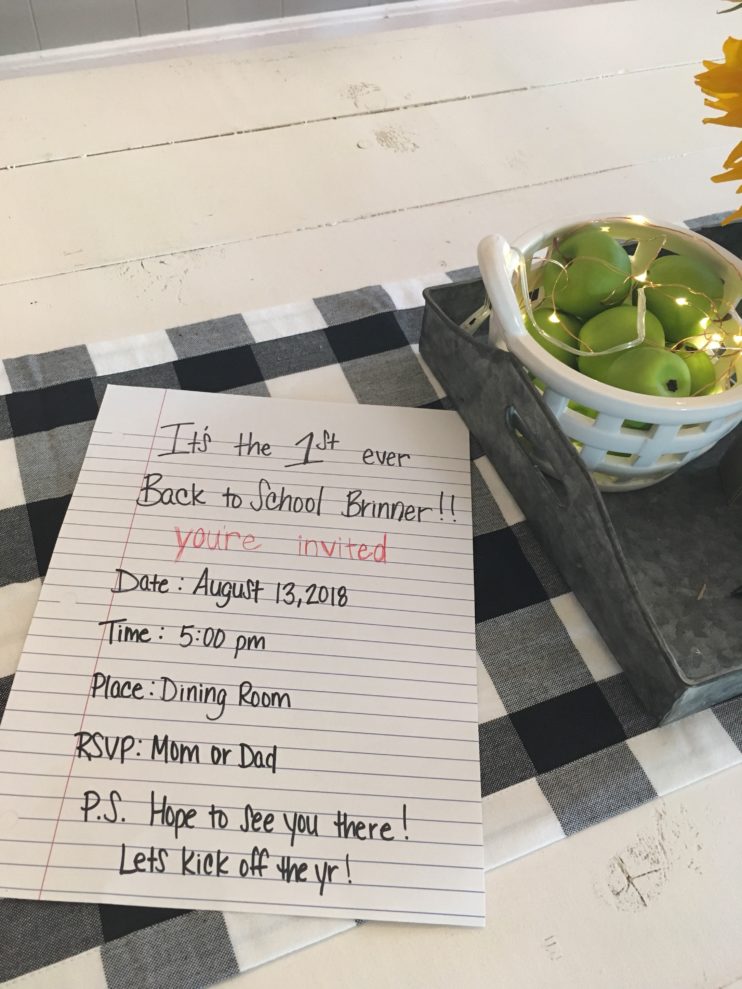 It's the 1st ever
Back to School Brinner!!
you're invited
Date: August 13, 2018
Time: 5:00 pm
Place: Dining Room
RSVP: Mom or Dad
P.S. Hope to see you there!
Lets kick off the yr!